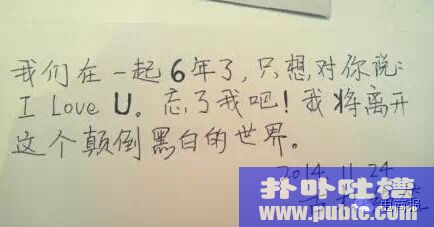 我们在一起6年了,只想对你说:
I Love U。忘了我吧!我将离开
这个颠倒黑白的世界。
2014.11.24
扑卟吐槽
www.pubtc.com